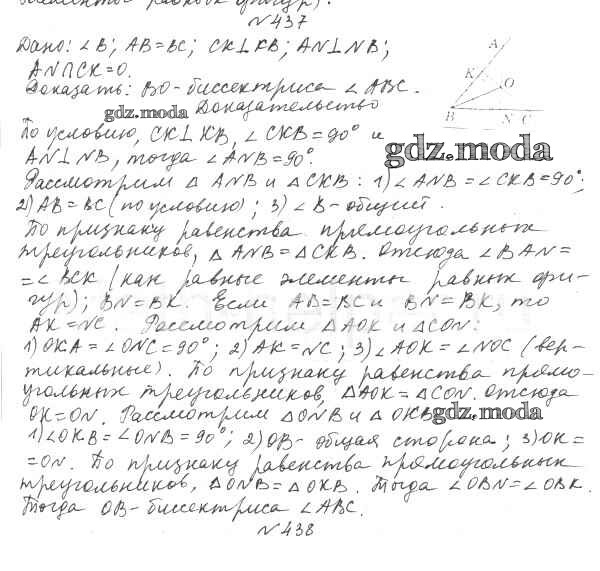 элементы равных фигур).
№ 437
Дано: ∠B; AB=BC; CK⊥KB; AN⊥NB;
AN∩CK=O.
Доказать: BO-биссектриса ∠ABC.
gdz.moda Доказательство
По условию, CK⊥KB, ∠CKB=90° и
AN⊥NB, тогда ∠ANB=90°.
gdz.moda
Рассмотрим △ ANB и △ CKB: 1) ∠ANB=∠CKB=90°;
2) AB=BC (по условию); 3) ∠B-общий.
По признаку равенства прямоугольных
треугольников, △ ANB=△CKB. Отсюда ∠BAN=
=∠BCK (как равные элементы равных фи-
гур); BN=BK. Если AB=BC и BN=BK, то
AK=NC. Рассмотрим △AOK и △CON:
1) OKA=∠ONC=90°; 2) AK=NC; 3) ∠AOK=∠NOC (вер-
тикальные). По признаку равенства прямо-
угольных треугольников, △AOK=△CON. Отсюда
OK=ON. Рассмотрим △ONB и △ OKB
gdz.moda
1) ∠OKB=∠ONB=90°; 2) OB-общая сторона; 3) OK=
=ON. По признаку равенства прямоугольных
треугольников, △ONB=△OKB. Тогда ∠OBN=∠OBK.
Тогда OB-биссектриса ∠ABC.
№ 438
A
K
O
B
N C